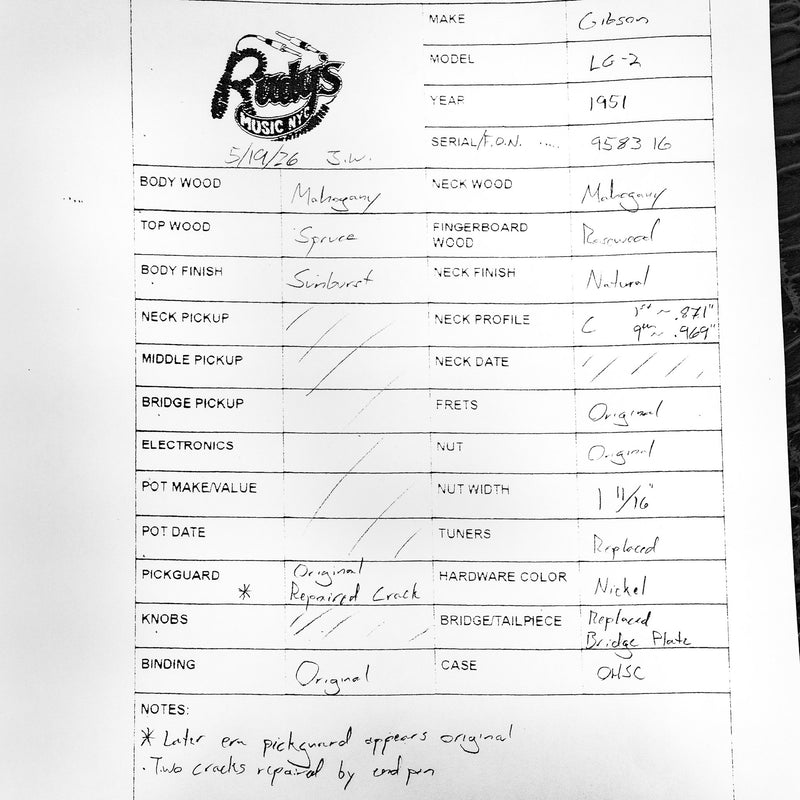 Rudy's
MUSIC NYC
5/19/26 J.W.
MAKE Gibson
MODEL LG-2
YEAR 1951
SERIAL/F.O.N. ..... 9583 16
BODY WOOD Mahogany NECK WOOD Mahogany
TOP WOOD Spruce FINGERBOARD WOOD Rosewood
BODY FINISH Sunburst NECK FINISH Natural
NECK PICKUP NECK PROFILE C 1st ~ .871"
9th ~ .969"
MIDDLE PICKUP NECK DATE
BRIDGE PICKUP FRETS Original
ELECTRONICS NUT Original
POT MAKE/VALUE NUT WIDTH 1 11/16"
POT DATE TUNERS Replaced
PICKGUARD * Original Repaired Crack HARDWARE COLOR Nickel
KNOBS BRIDGE/TAILPIECE Replaced Bridge Plate
BINDING Original CASE OHSC
NOTES:
* Later era pickguard appears original
. Two cracks repaired by end pin